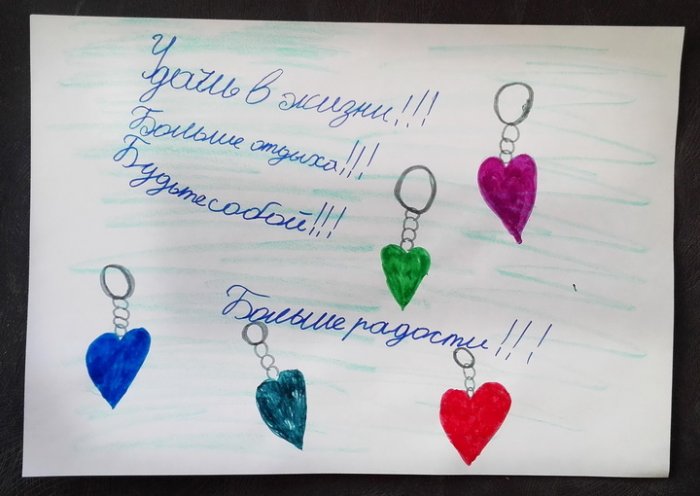 Удачь в жизни!!!
Больше отдыха!!!
Будьте собой!!!
Больше радости!!!